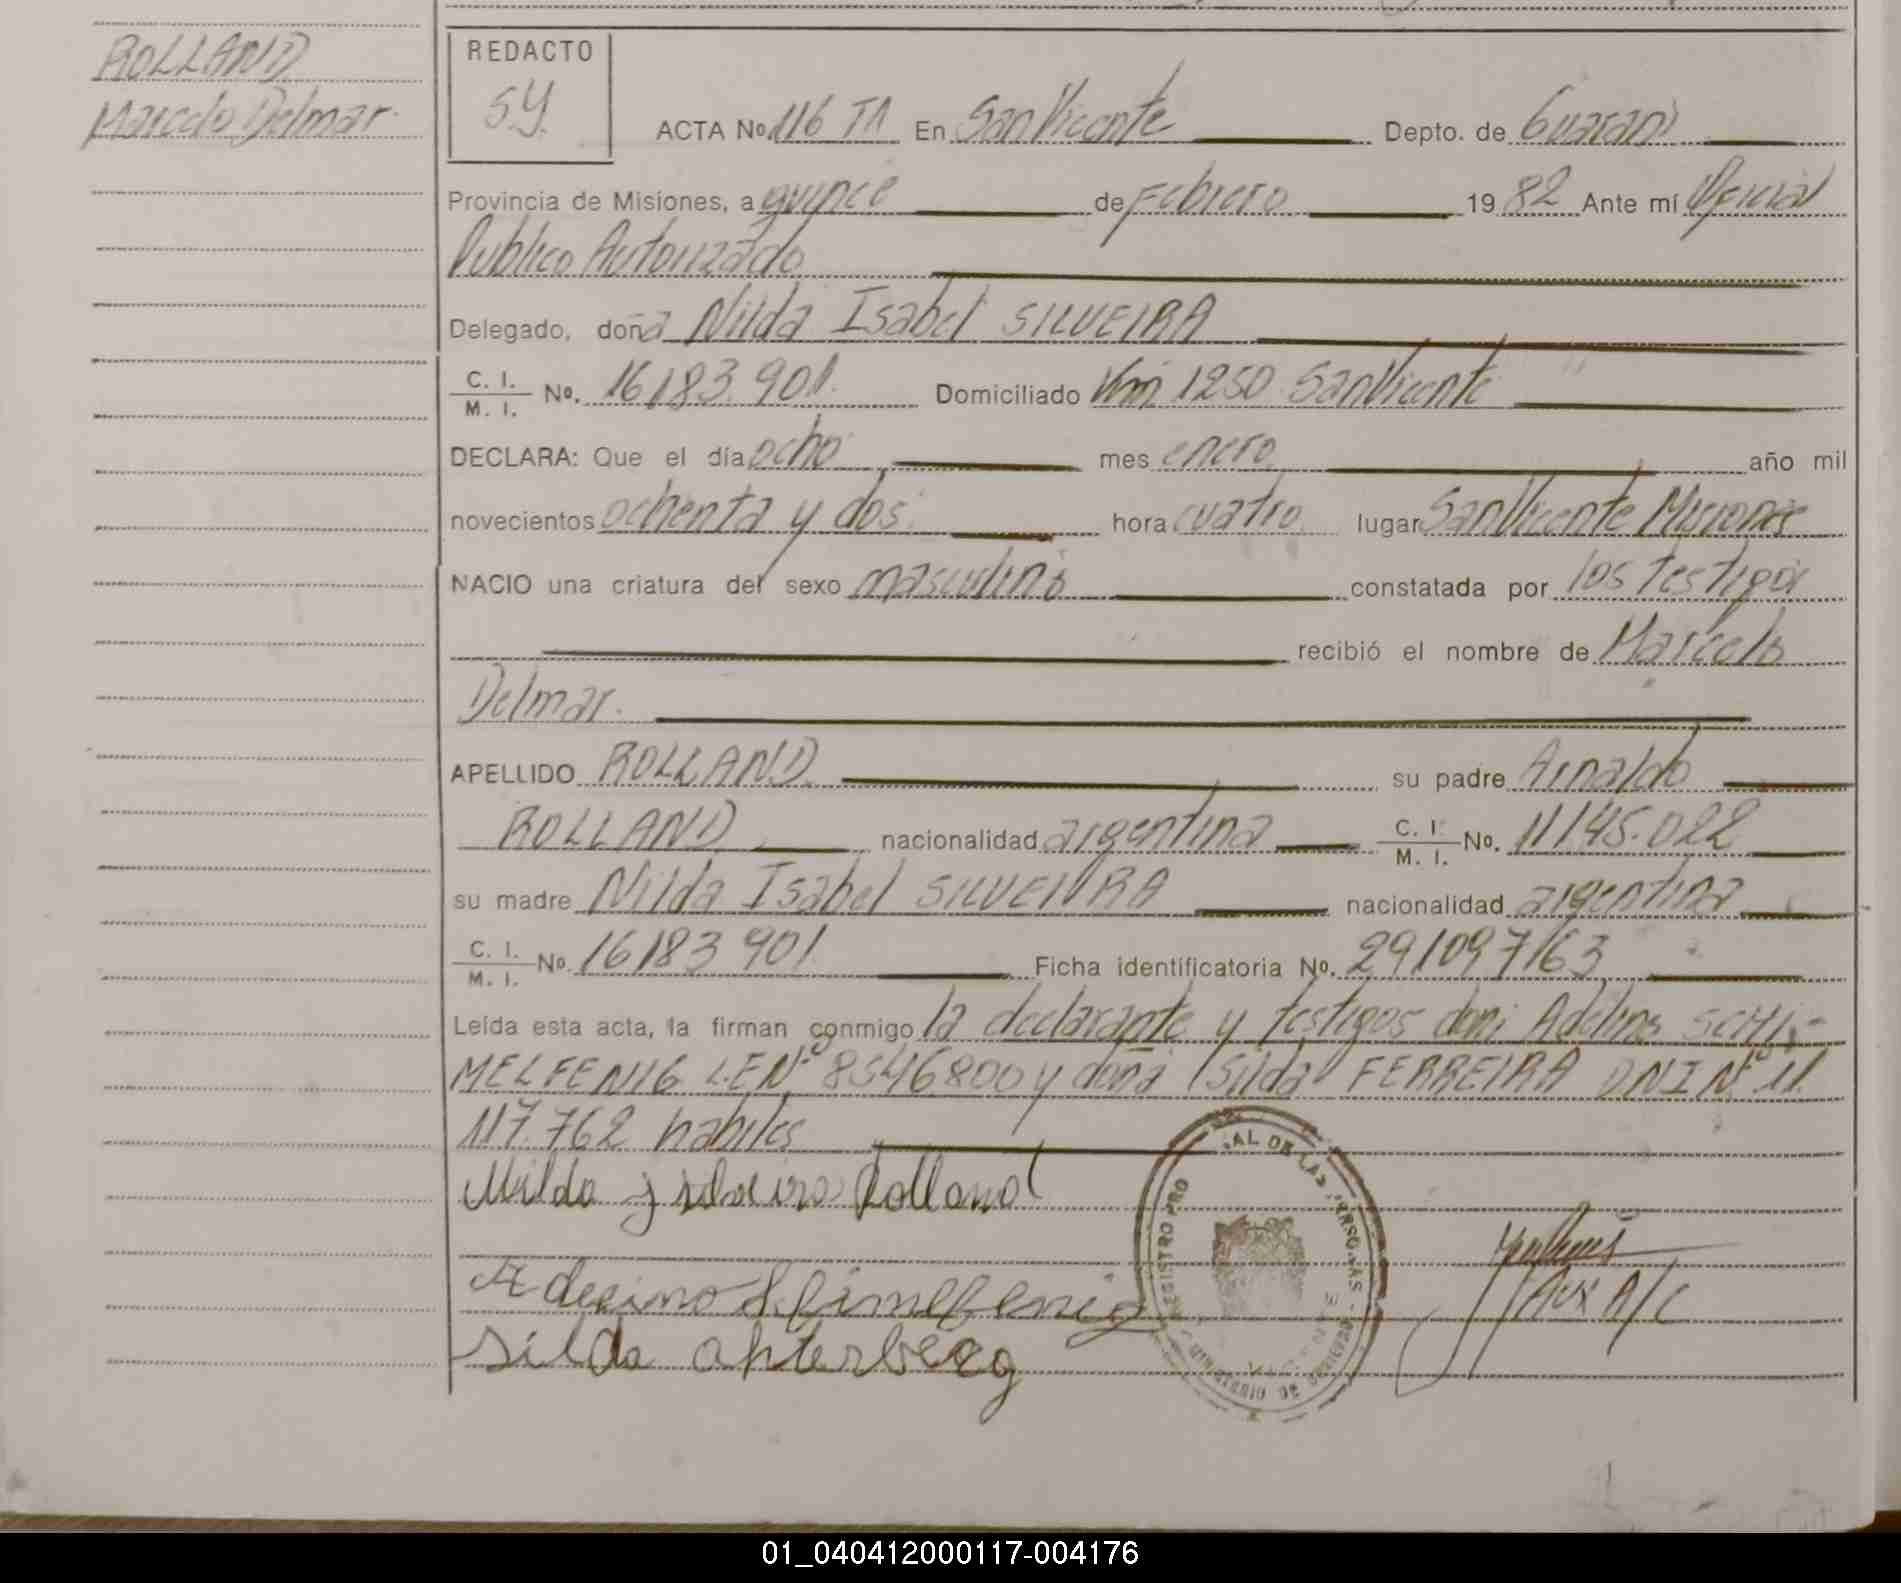 ROLLAND
Marcelo Delmar
REDACTO
S.Y.
ACTA No. 116 T1 En San Vicente Depto. de Guaraní
Provincia de Misiones, a quince de Febrero 1982 Ante mí Oficial
Publico Autorizado
Delegado, doña Nilda Isabel SILVEIRA
C. I. / M. I. No. 16183.901. Domiciliado Km 1250 San Vicente
DECLARA: Que el día ocho mes enero año mil
novecientos ochenta y dos hora cuatro lugar San Vicente Misiones
NACIO una criatura del sexo masculino constatada por los testigos
recibió el nombre de Marcelo
Delmar.
APELLIDO ROLLAND su padre Arnaldo
ROLLAND nacionalidad argentina C. I. / M. I. No. 11145.022
su madre Nilda Isabel SILVEIRA nacionalidad argentina
C. I. / M. I. No. 16183901 Ficha identificatoria No. 291097163
Leída esta acta, la firman conmigo la declarante y testigos don: Adelino SCHI-
MELFENIG L.E Nº 8546800 y doña Silda FERREIRA DNI Nº 11.
117.762 habiles
Nilda J silveira Rolland
Silda
Aux A/C
REGISTRO PRO AL DE LAS PERSONAS
01_040412000117-004176